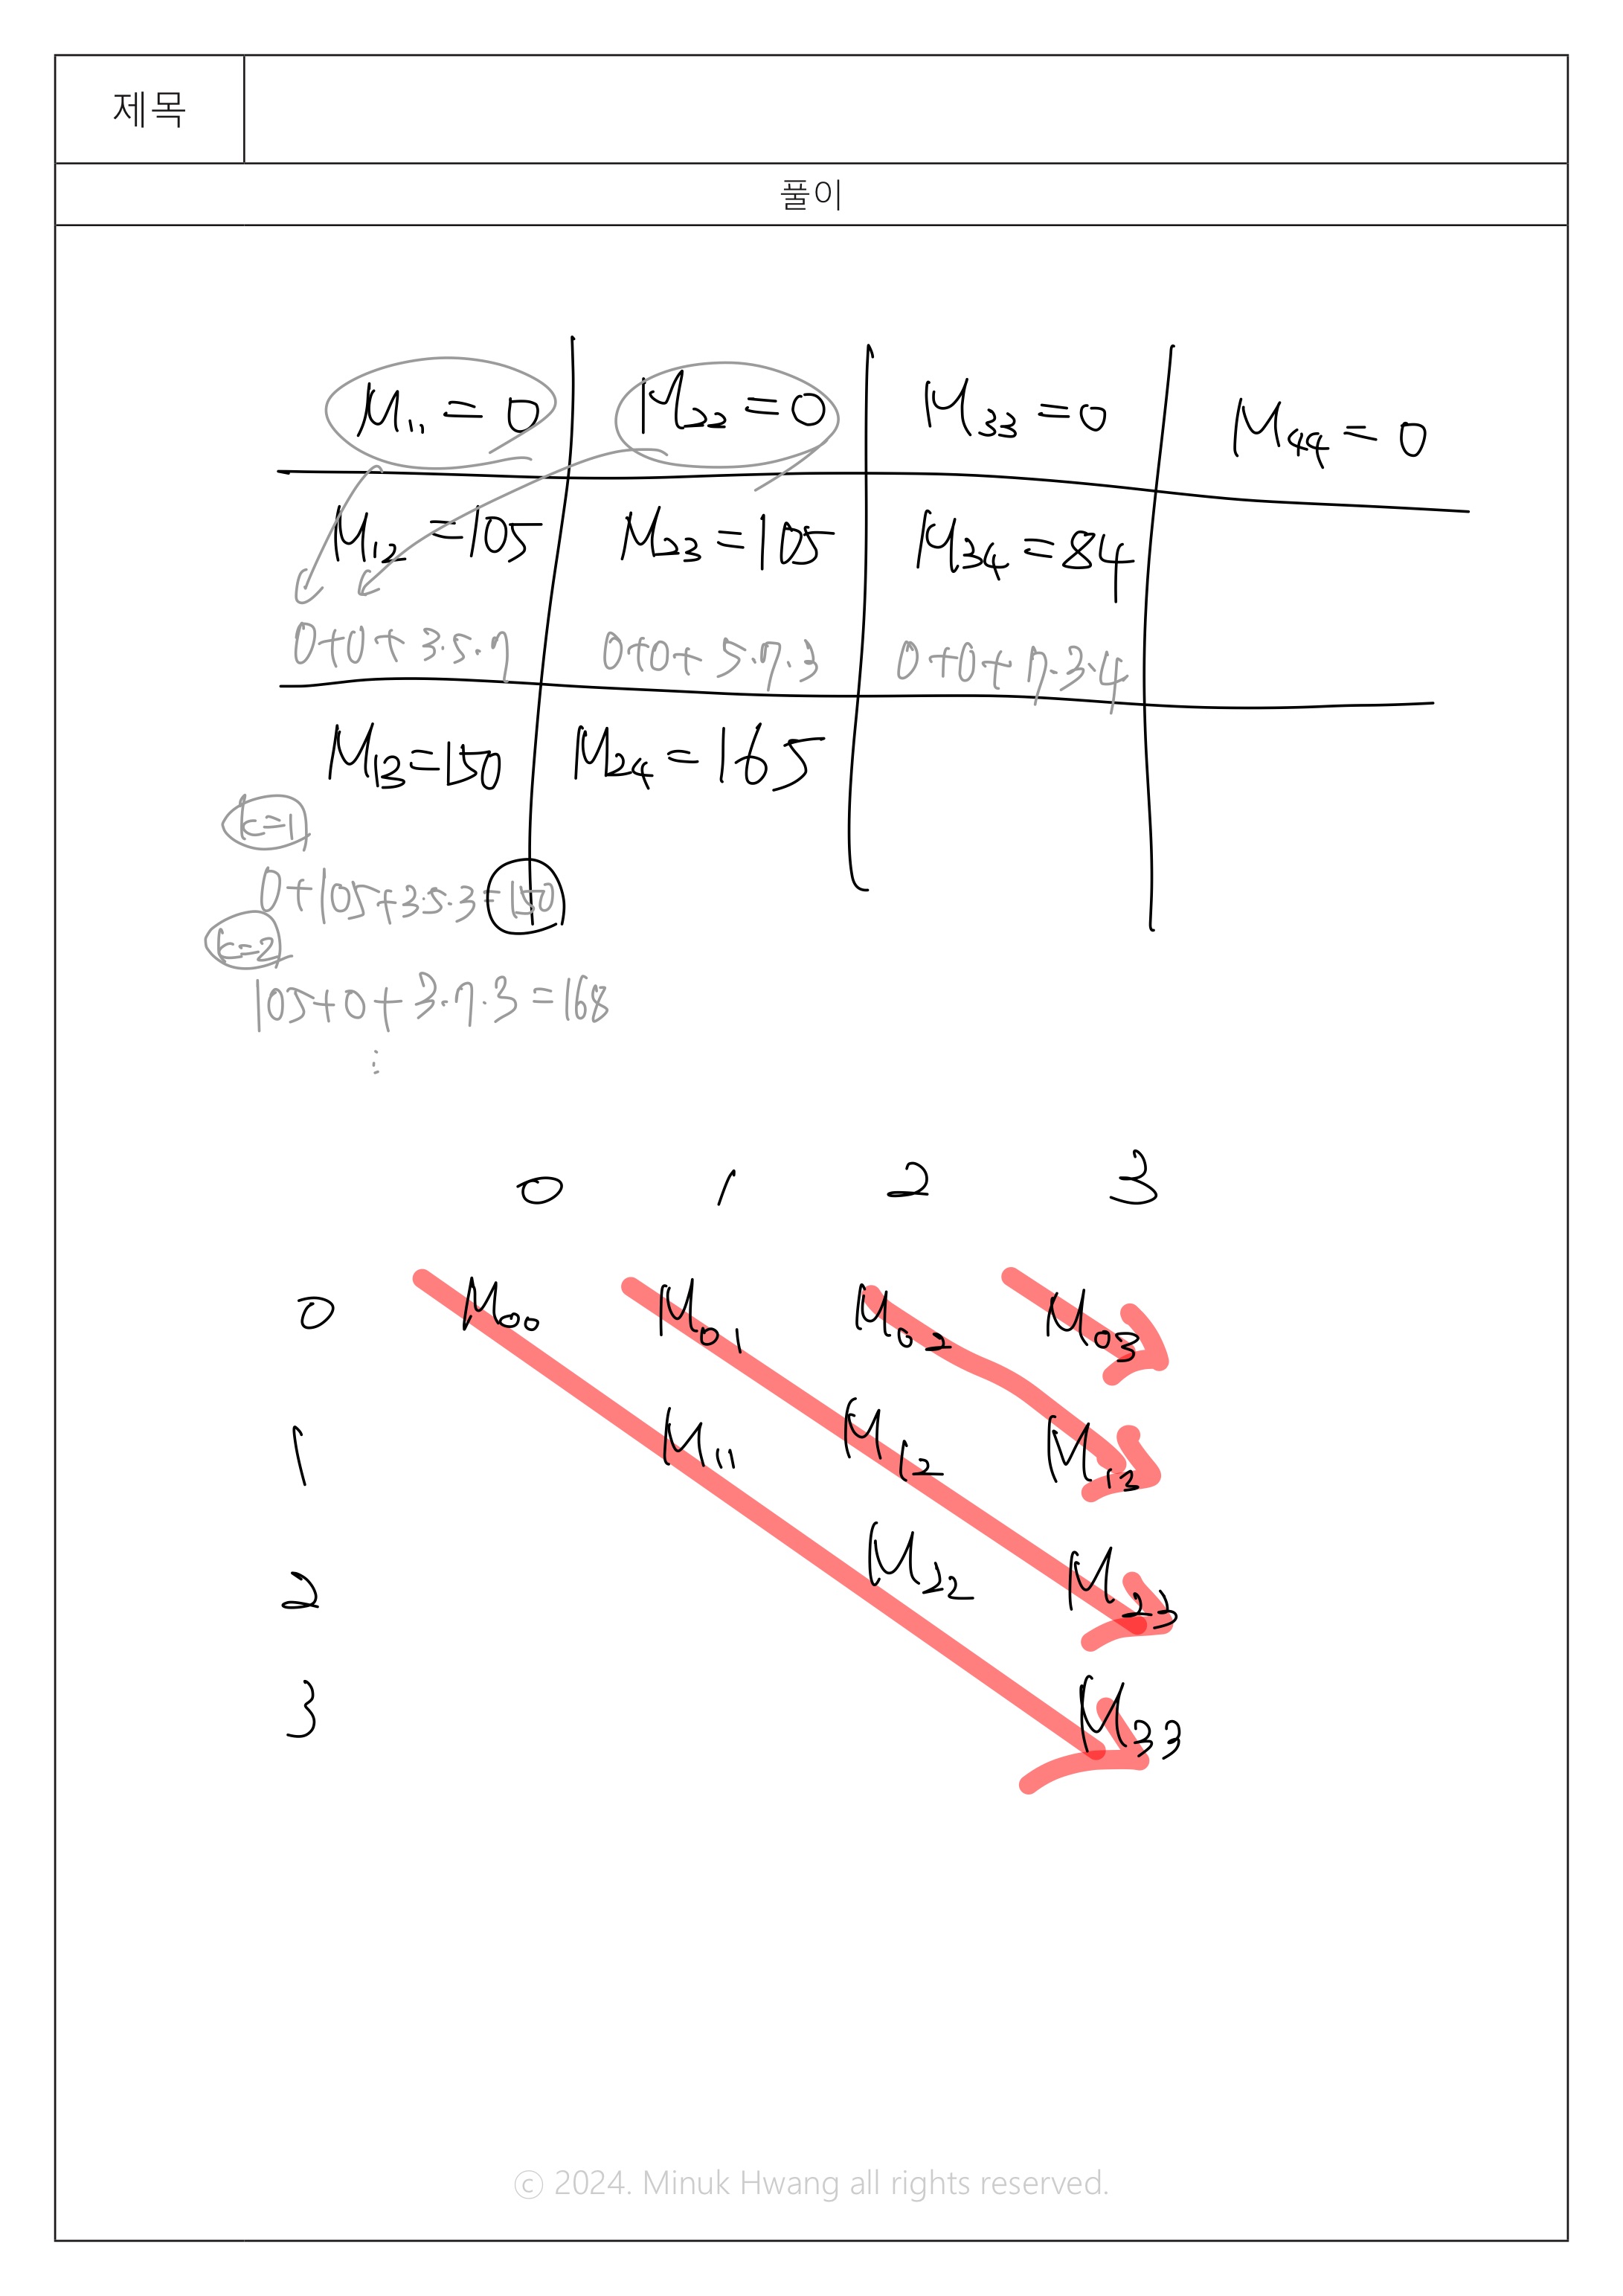 제목
풀이
M11 = 0 M22 = 0 M33 = 0 M44 = 0
M12 = 105 M23 = 105 M34 = 84
0+0+3·5·7 0+0+5·7·3 0+0+7·3·4
M13 = 150 M24 = 165
k=1
0+105+3·5·3=150
k=2
105+0+3·7·3=168
⋮
0 1 2 3
0 M00 M01 M02 M03
1 M11 M12 M13
2 M22 M23
3 M33
© 2024. Minuk Hwang all rights reserved.